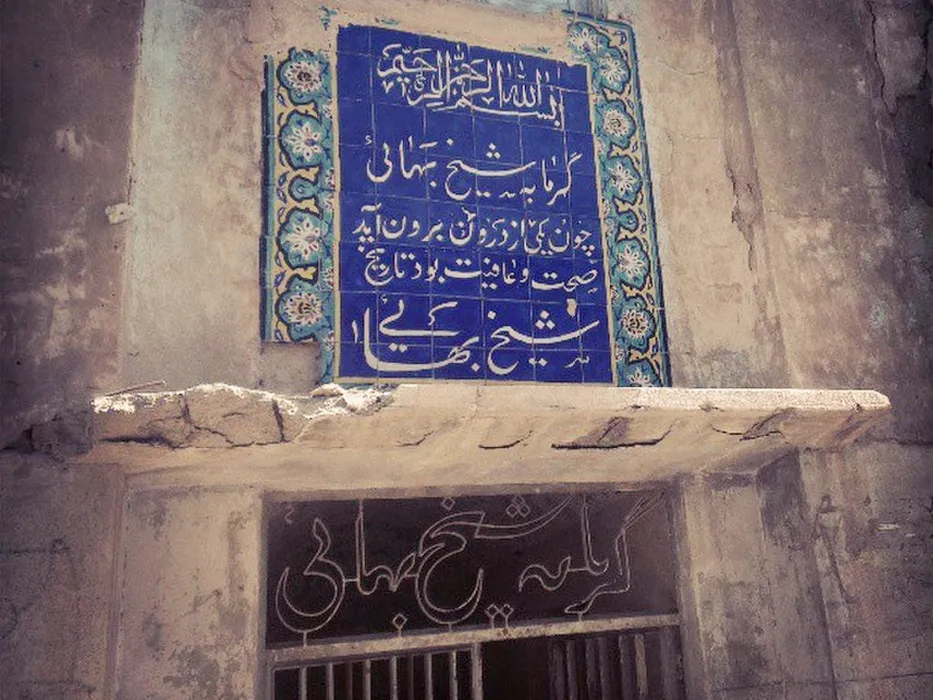 بسم الله الرحمن الرحیم
گرمابه شیخ بهائی
چون یکی از درون برون آید
صحت و عافیت بود تاریخ
شیخ بهایی
گرمابه شیخ بهائی